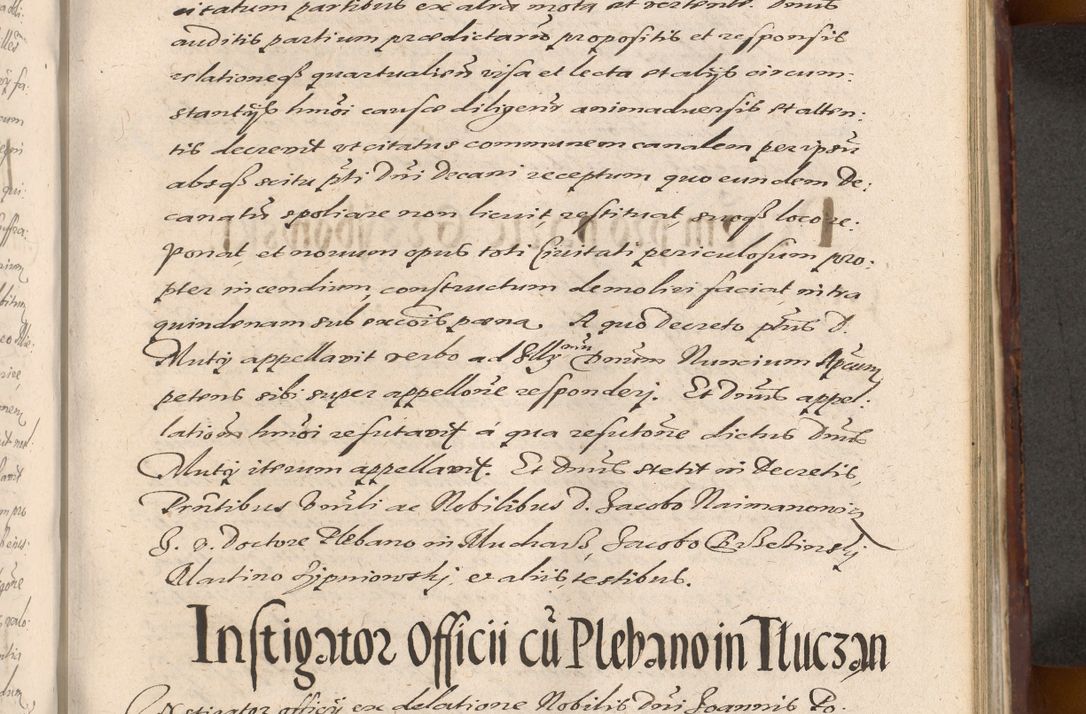 citatum partibus ex altra mota et vertenti. Dnus
auditis partium prædictarũ propositis et responsis
relationeqȝ quartualiũ visa et lecta et alijs circum:
stantijs hmõi causæ diligenr̃ animaduersis et atten:
tis decrevit vt citatus communem canalem per ipsũ
absqȝ scitu p̃ti Dñi Decani receptum quo eundem De:
canatũ spoliare non licuit restituat, suoqȝ loco re:
ponat, et novum opus toti Civitati periculosum pro:
pter incendium, constructum demoliri faciat, intra
quindenam sub excõis pæna. A quo Decreto p̃tus D.
Mutÿ appellavit verbo ad Illmum Dnum Nuncium Apcum
petens sibi super appellõne responderj. Et Dnus appel:
lationẽ hmõi refutavit à qua refutõne dictus Dnus
Mutÿ iterum appellavit. Et Dnus stetit in Decretis,
Prñtibus Vnrĩli ac Nobilibus D. Jacobo Naimanowicz
J. V. Doctore Plebano in Mucharz, Jacobo Brzezinskj
Martino Zypniowskj, et aliis testibus.
Instigator Officii cũ Plebano in Tłuczan
Instigator officÿ ex delatione Nobilis Dñi Joannis Po: